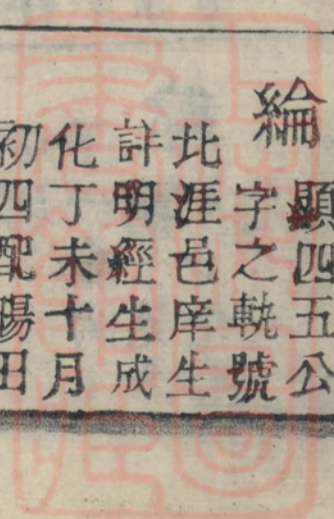 綸
顯四五公
字之軏號
北涯邑庠生
許明經生成
化丁未十月
初四配陽田